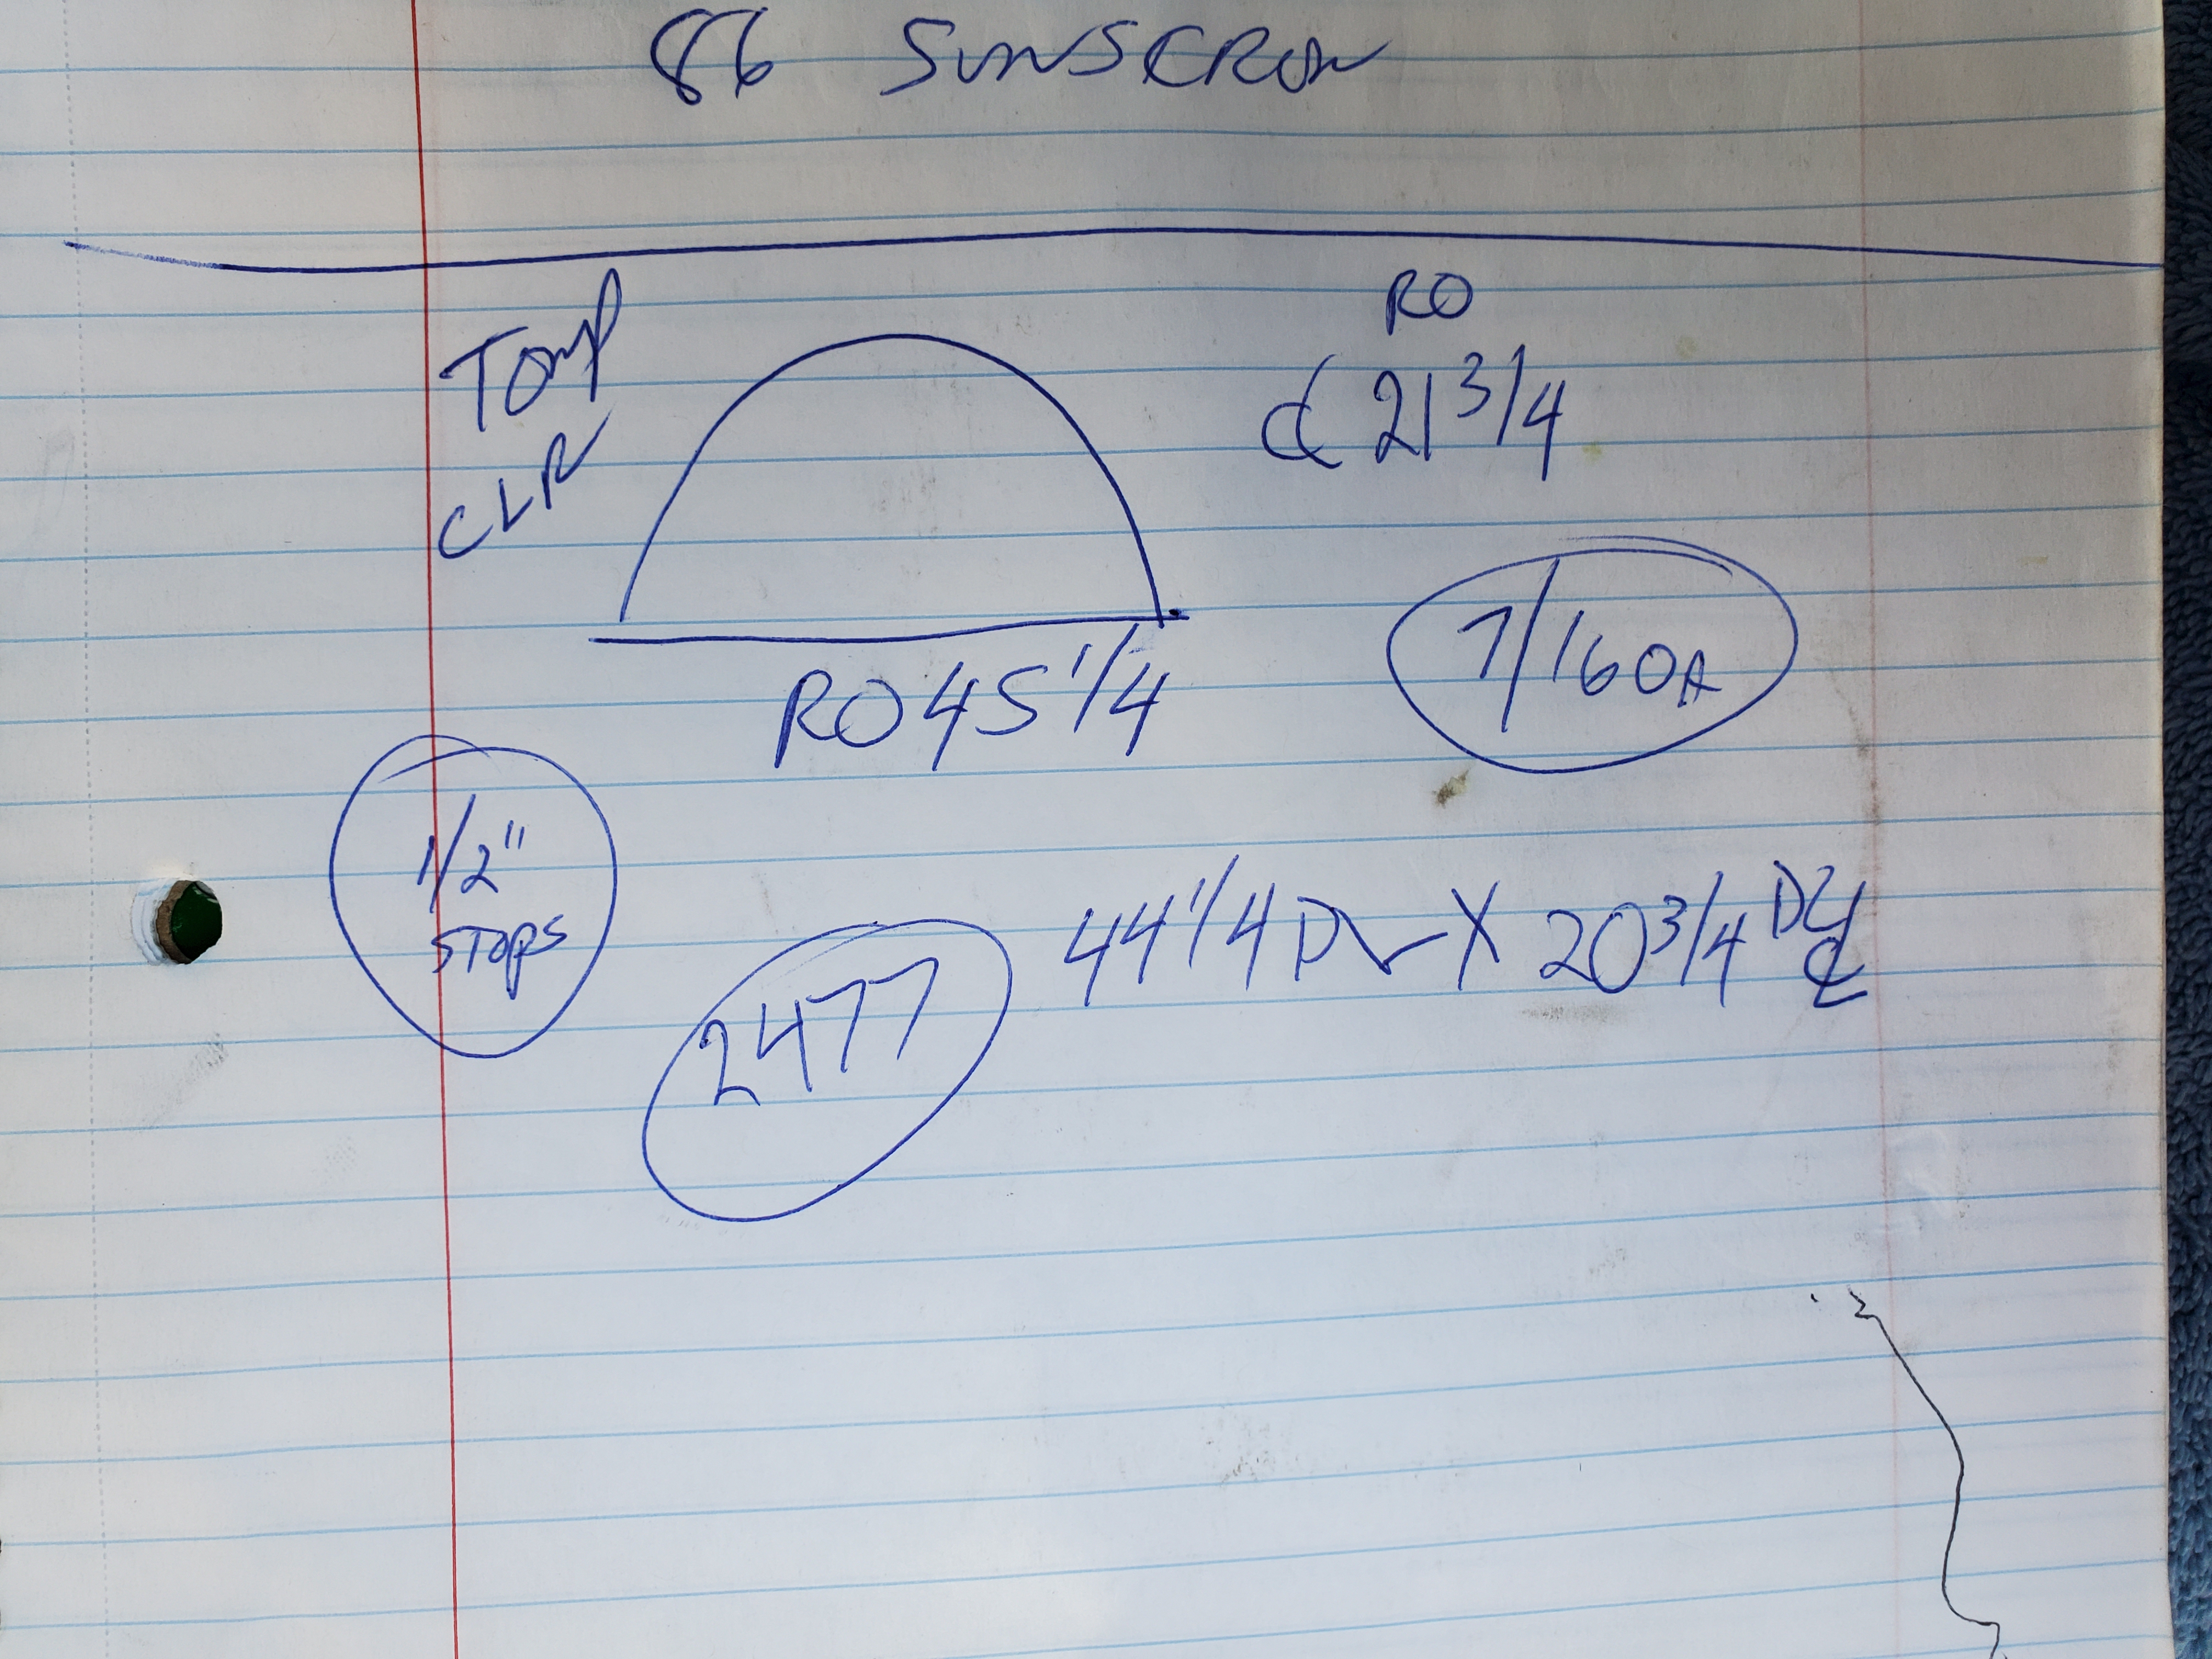 86 SUNSCREEN
TEMP
CLR
RO
℄ 21 3/4
RO 45 1/4
7/16 OA
1/2"
STOPS
2477
44 1/4 DLO X 20 3/4 DLO ℄